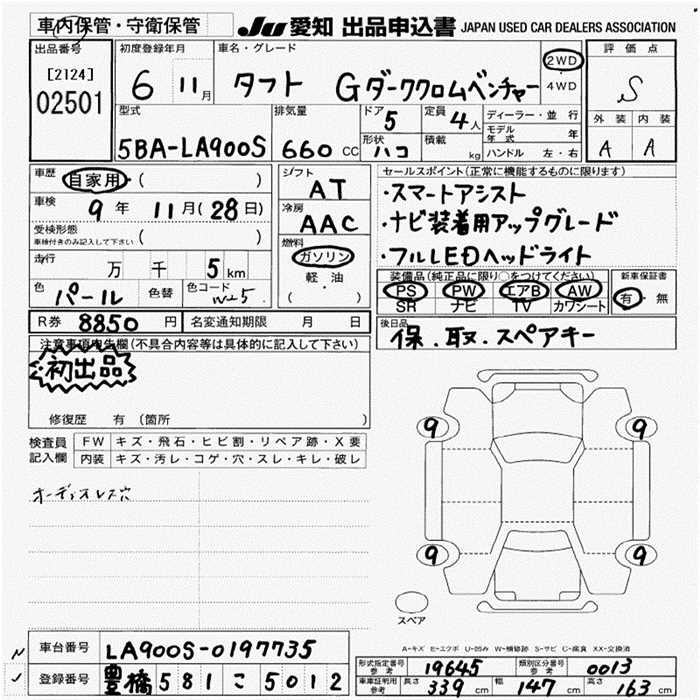 車内保管・守衛保管 JU 愛知 出品申込書 JAPAN USED CAR DEALERS ASSOCIATION
出品番号 初度登録年月 車名・グレード 評価点
[2124] 6 11月 タフト Gダーククロムベンチャー 2WD S
02501 4WD
型式 排気量 ドア 5 定員 4人 ディーラー・並行 外装 内装
モデル年式 年
5BA-LA900S 660CC 形状 ハコ 積載 kg ハンドル 左・右 A A
車歴 自家用・( ) シフト AT セールスポイント(正常に機能するものに限ります)
車検 9年 11月(28日) 冷房 AAC ・スマートアシスト
受検形態 ( ) ・ナビ装着用アップグレード
車検付きのみ記入して下さい 燃料
走行 万 千 5km ガソリン ・フルLEDヘッドライト
軽・油 装備品(純正品に限り○をつけてください) 新車保証書
色 パール 色替 色コード ( ) PS PW エアB AW 有・無
SR ナビ TV カワシート
R券 8850円 名変通知期限 月 日 後日品
保.取.スペアキー
注意事項申告欄(不具合内容等は具体的に記入して下さい)
初出品
修復歴 有(箇所 )
検査員 FW キズ・飛石・ヒビ割・リペア跡・X要
記入欄 内装 キズ・汚レ・コゲ・穴・スレ・キレ・破レ
9 9
オーディオレス穴
9 9
スペア
A-キズ E-エクボ U-凹み W-補修跡 S-サビ C-腐食 XX-交換済
車台番号 LA900S-0197735
形式指定番号 参考 19645 類別区分番号 参考 0013
登録番号 豊橋 581 こ 5012
車庫証明用 参考 長さ 339cm 幅 147cm 高さ 163cm